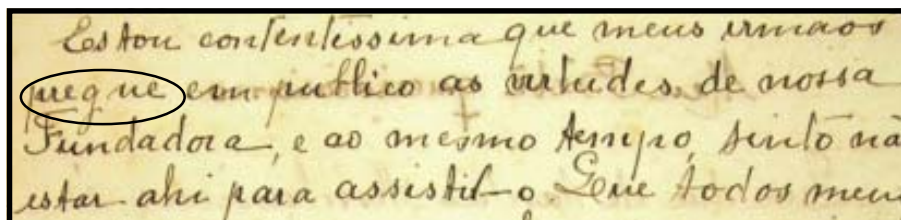 Estou contentissima que meus irmaos
pregue em publico as virtudes de nossa
Fundadora, e ao mesmo tempo, sinto nã
estar ahi para assistil-o. Que todos meu